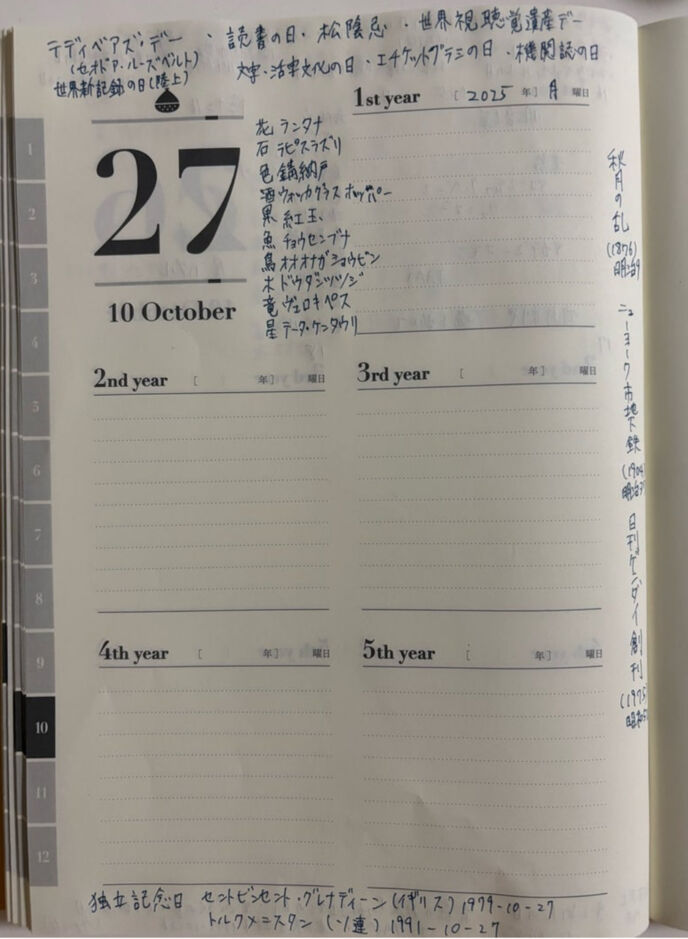 テディベアズ・デー ・ 読書の日 ・ 松陰忌 ・ 世界視聴覚遺産デー
(セオドア・ルーズベルト)
文字・活字文化の日 ・ エチケットブラシの日 ・ 機関誌の日
世界新記録の日(陸上)
1
2
3
4
5
6
7
8
9
10
11
12
27
10 October
花 ランタナ
石 ラピスラズリ
色 錆納戸
酒 ウォッカグラスホッパー
果 紅玉
魚 チョウセンブナ
鳥 オオオナガショウビン
木 ドウダンツツジ
竜 ヴェロキペス
星 テータ・ケンタウリ
1st year [ 2025 年] 月 曜日
2nd year [ 年] 曜日
3rd year [ 年] 曜日
4th year [ 年] 曜日
5th year [ 年] 曜日
秋月の乱 (1876) 明治9
ニューヨーク市地下鉄 (1904) 明治37
日刊ゲンダイ創刊 (1975) 昭和
独立記念日 セントビンセント・グレナディーン(イギリス) 1979-10-27
トルクメニスタン (ソ連) 1991-10-27